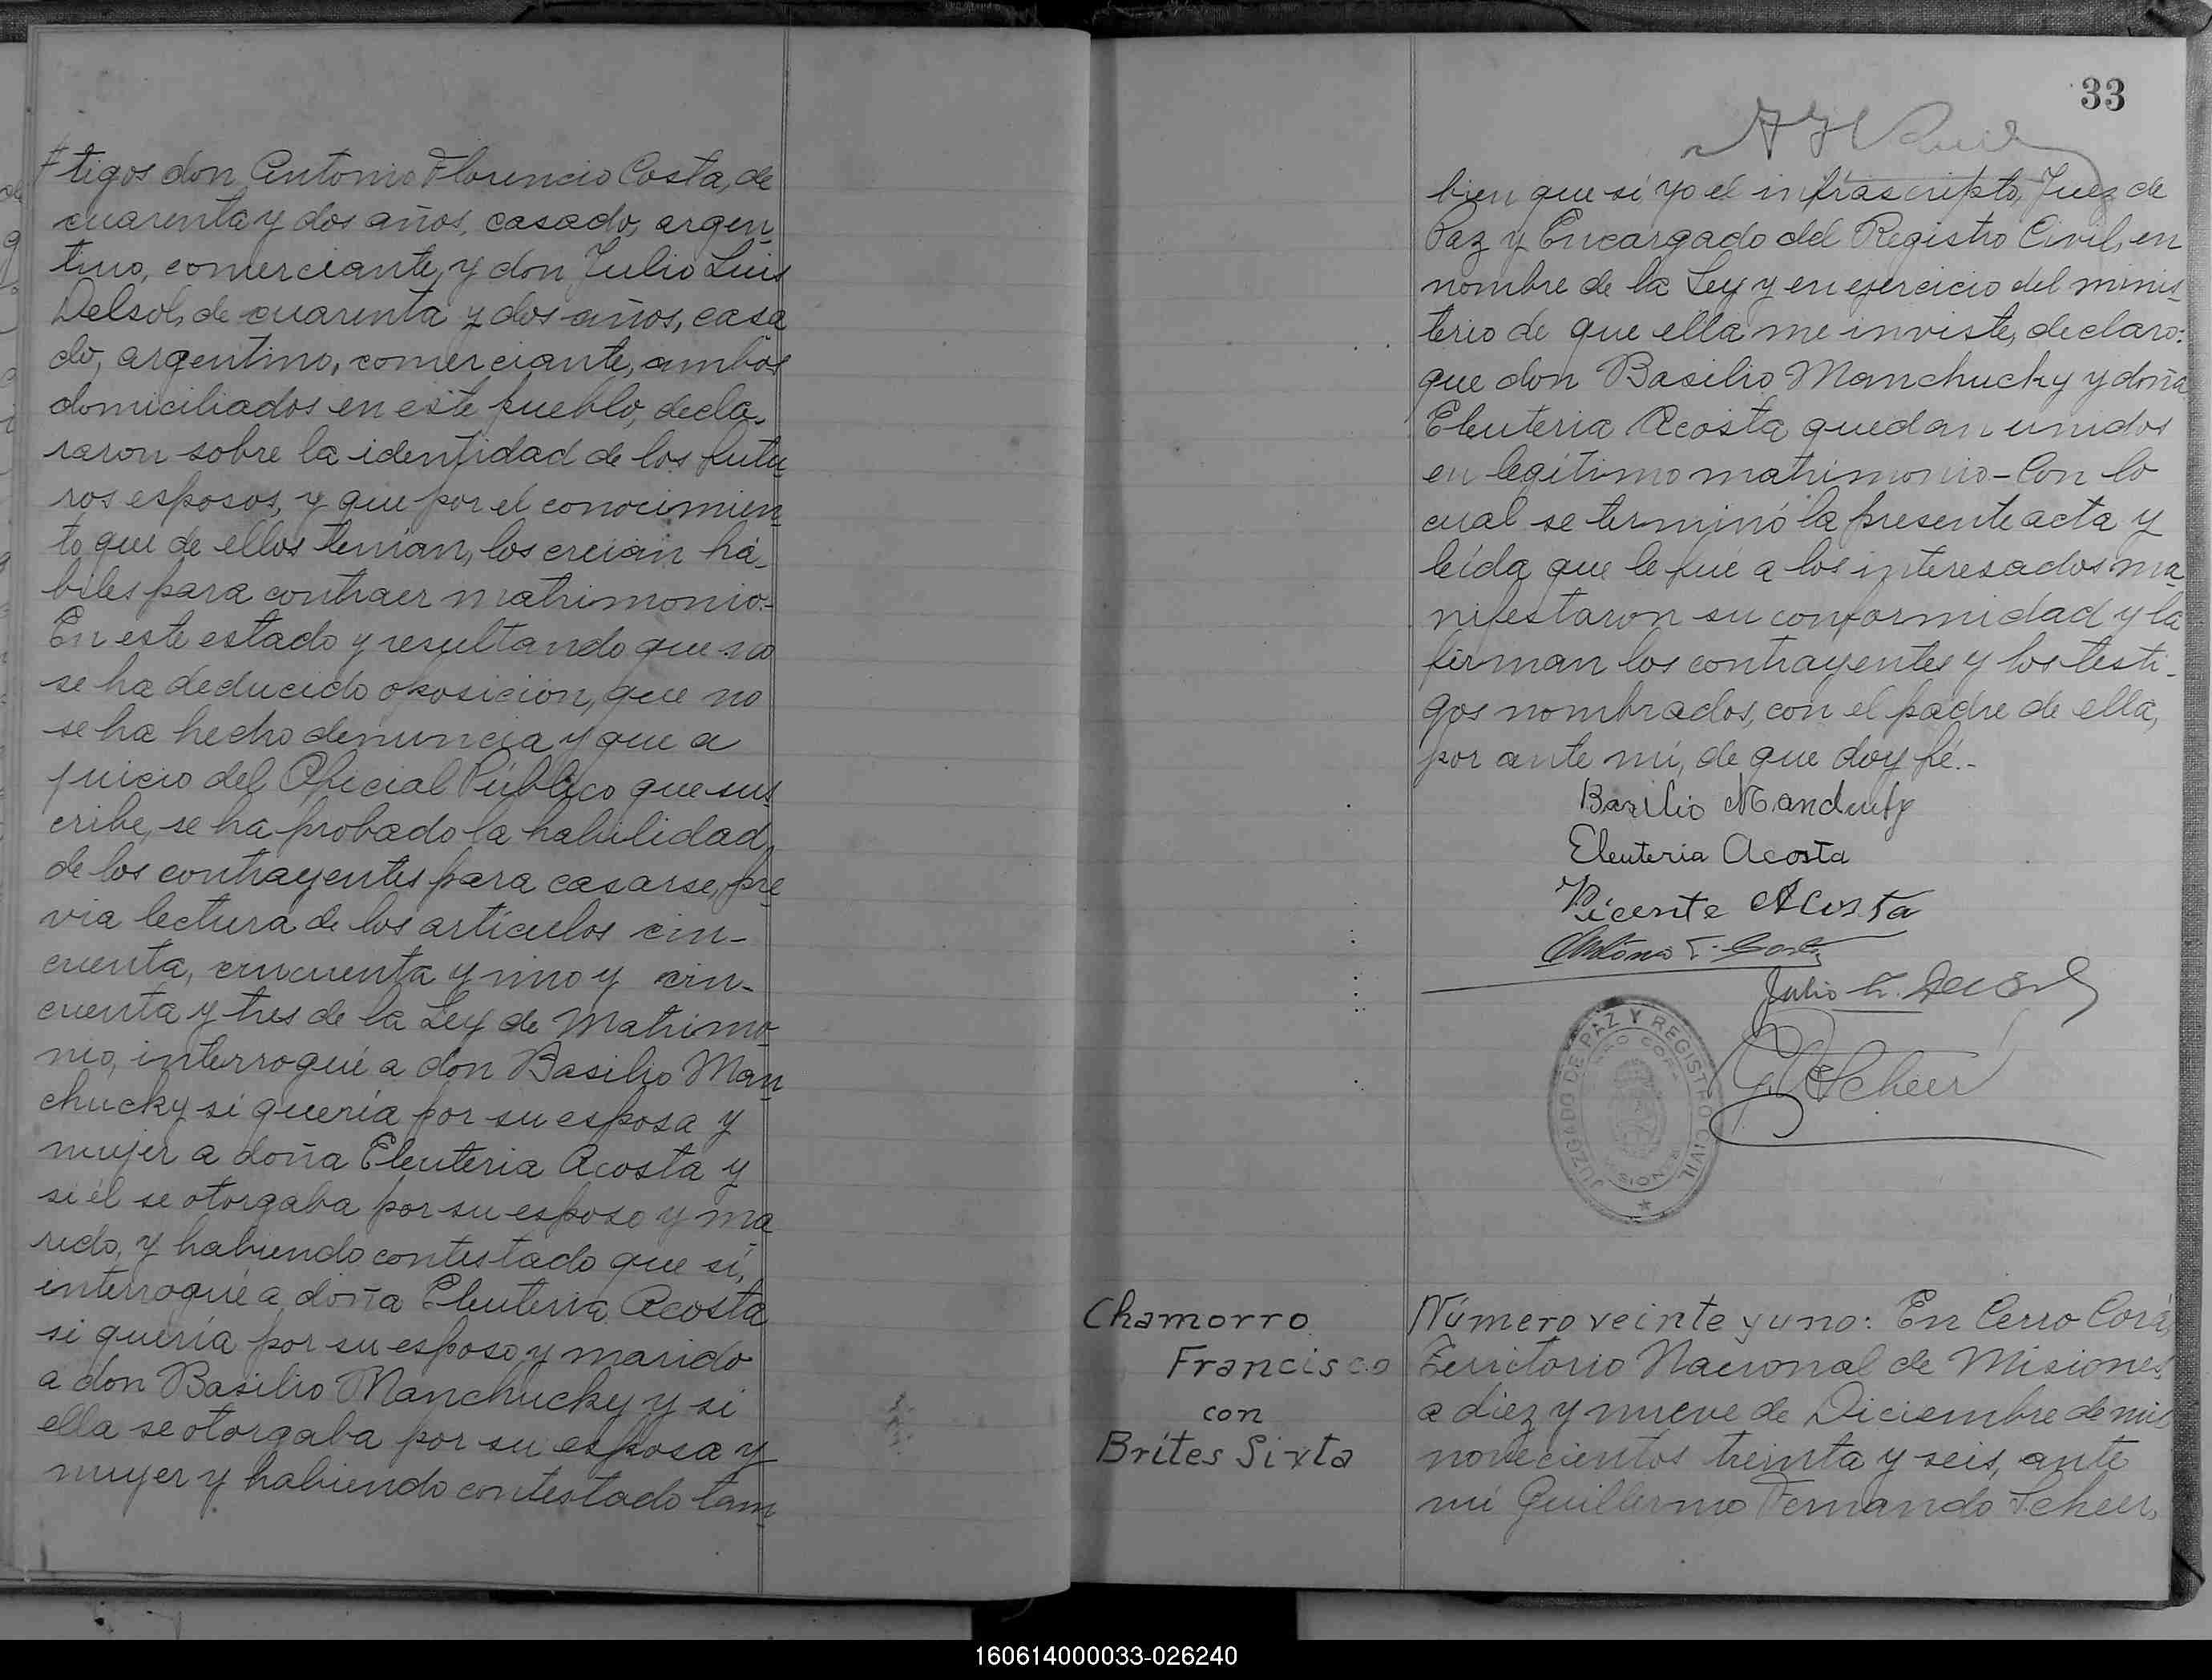 tigos don Antonio Florencio Costa, de
cuarenta y dos años, casado, argen-
tino, comerciante, y don Julio Luis
Delsol, de cuarenta y dos años, casa
do, argentino, comerciante, ambos
domiciliados en este pueblo, decla-
raron sobre la identidad de los futu-
ros esposos, y que por el conocimien-
to que de ellos tenían, los creían há-
biles para contraer matrimonio.-
En este estado y resultando que no
se ha deducido oposición, que no
se ha hecho denuncia y que a
juicio del Oficial Público que sus-
cribe, se ha probado la habilidad
de los contrayentes para casarse, pre-
via lectura de los artículos cin-
cuenta, cincuenta y uno y cin-
cuenta y tres de la Ley de Matrimo-
nio, interrogué a don Basilio Man-
chucky si quería por su esposa y
mujer a doña Eleuteria Acosta y
si él se otorgaba por su esposo y ma-
rido, y habiendo contestado que sí,
interrogué a doña Eleuteria Acosta
si quería por su esposo y marido
a don Basilio Manchucky y si
ella se otorgaba por su esposa y
mujer y habiendo contestado tam-
33
bien que sí, yo el infrascripto, Juez de
Paz y Encargado del Registro Civil, en
nombre de la Ley y en ejercicio del minis-
terio de que ella me inviste, declaro:
que don Basilio Manchucky y doña
Eleuteria Acosta quedan unidos
en legítimo matrimonio - Con lo
cual se terminó la presente acta y
leída que le fué a los interesados ma-
nifestaron su conformidad y la
firman los contrayentes y los testi-
gos nombrados, con el padre de ella,
por ante mí, de que doy fé.-
Bazilio
Eleuteria Acosta
Vicente Acosta
Antonio F. Costa
Julio L. Delsol
JUZGADO DE PAZ Y REGISTRO CIVIL
CERRO CORÁ
MISIONES
G F Scheer
Chamorro
Francisco
con
Brítes Sixta
Número veinte y uno: En Cerro Corá,
Territorio Nacional de Misiones,
a diez y nueve de Diciembre de mil
novecientos treinta y seis, ante
mí Guillermo Fernando Scheer,
160614000033-026240